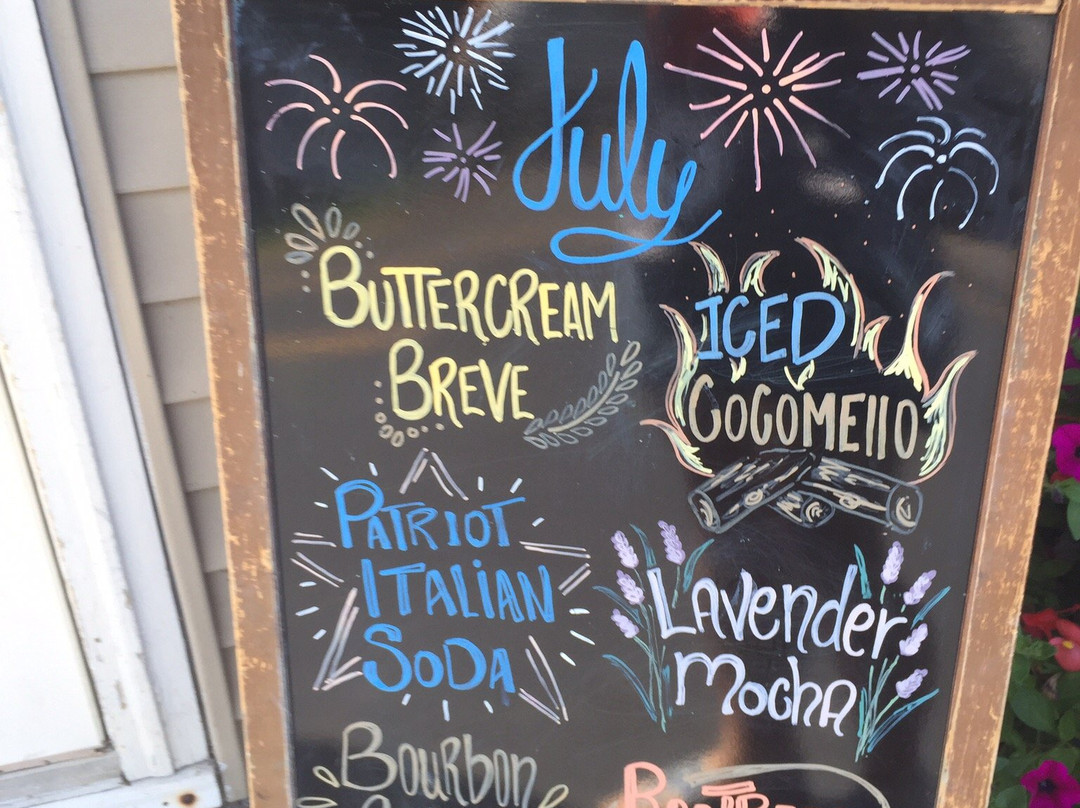 July
Buttercream
Breve
ICED
COCOMEllO
Patriot
Italian
Soda
Lavender
Mocha
Bourbon